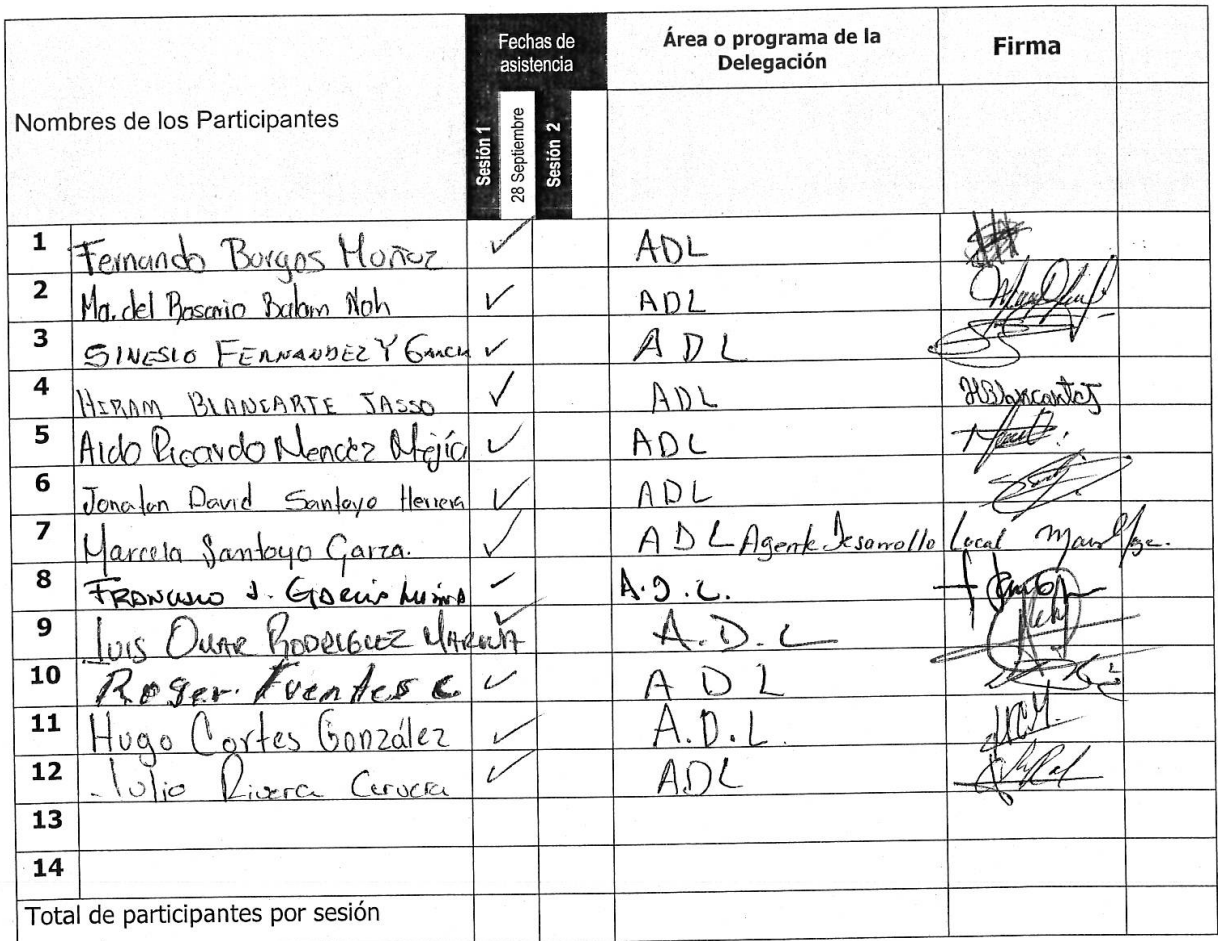 Nombres de los Participantes
Fechas de asistencia
Sesión 1
28 Septiembre
Sesión 2
Área o programa de la Delegación
Firma
1 Fernando Borgos Muñoz ✓ ADL
2 Ma. del Rosario Balam Noh ✓ ADL
3 SINESIO FERNANDEZ Y GARCIA ✓ ADL
4 HIRAM BLANCARTE JASSO ✓ ADL HBlancarteJ
5 Aldo Ricardo Mendez Mejía ✓ ADL
6 Jonatan David Santoyo Herrera ✓ ADL
7 Marcela Santoyo Garza. ✓ ADL Agente Desarrollo Local
8 FRANCISCO J. GARCIA ✓ A.D.L.
9 LUIS OMAR RODRIGUEZ ✓ A.D.L
10 Roger Fuentes C ✓ ADL
11 Hugo Cortes González ✓ A.D.L.
12 Julio Rivera ✓ ADL
13
14
Total de participantes por sesión